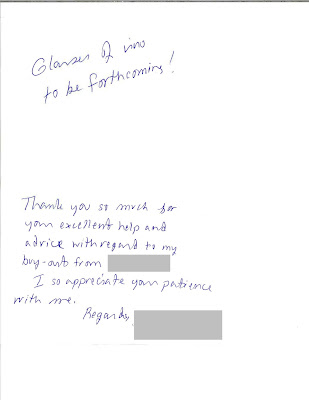 Glasses of vino
to be forthcoming!
Thank you so much for
your excellent help and
advice with regard to my
buy-out from
I so appreciate your patience
with me.
Regards,